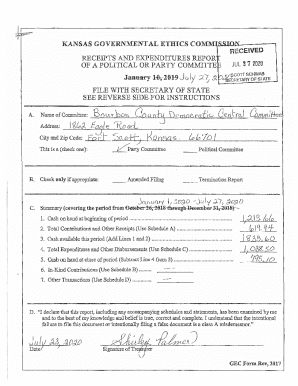 KANSAS GOVERNMENTAL ETHICS COMMISSION
RECEIVED
RECEIPTS AND EXPENDITURES REPORT
OF A POLITICAL OR PARTY COMMITTEE
JUL 27 2020
January 10, 2019 July 27, 20
SCOTT SCHWAB
SECRETARY OF STATE
FILE WITH SECRETARY OF STATE
SEE REVERSE SIDE FOR INSTRUCTIONS
A. Name of Committee: Bourbon County Democratic Central Committee
Address: 1862 Eagle Road
City and Zip Code: Fort Scott, Kansas 66701
This is a (check one): ✓ Party Committee Political Committee
B. Check only if appropriate: Amended Filing Termination Report
January 1, 2020 - July 27, 2020
C. Summary (covering the period from October 26, 2018 through December 31, 2018)
1. Cash on hand at beginning of period 1,213.66
2. Total Contributions and Other Receipts (Use Schedule A) 619.94
3. Cash available this period (Add Lines 1 and 2) 1833.60
4. Total Expenditures and Other Disbursements (Use Schedule C) 1,038.50
5. Cash on hand at close of period (Subtract Line 4 from 3) 795.10
6. In-Kind Contributions (Use Schedule B)
7. Other Transactions (Use Schedule D)
D. "I declare that this report, including any accompanying schedules and statements, has been examined by me
and to the best of my knowledge and belief is true, correct and complete. I understand that the intentional
failure to file this document or intentionally filing a false document is a class A misdemeanor."
July 23, 2020 Shirley Palmer
Date Signature of Treasurer
GEC Form Rev, 2017